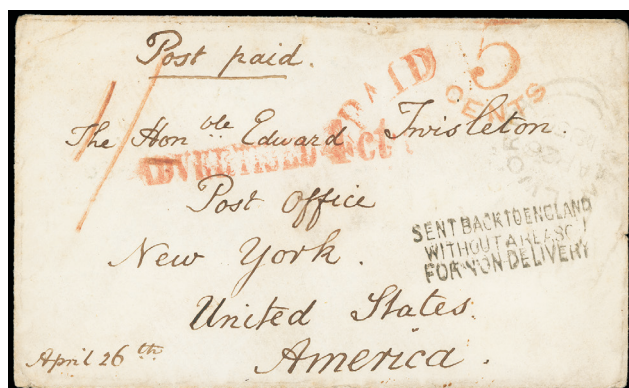 Post paid.
PAID
5
CENTS
The Hon ble Edward Twisleton.
ADVERTISED
Post Office
New York.
SENT BACK TO ENGLAND
WITHOUT A REASON
FOR NON-DELIVERY
United States
April 26 th
America.